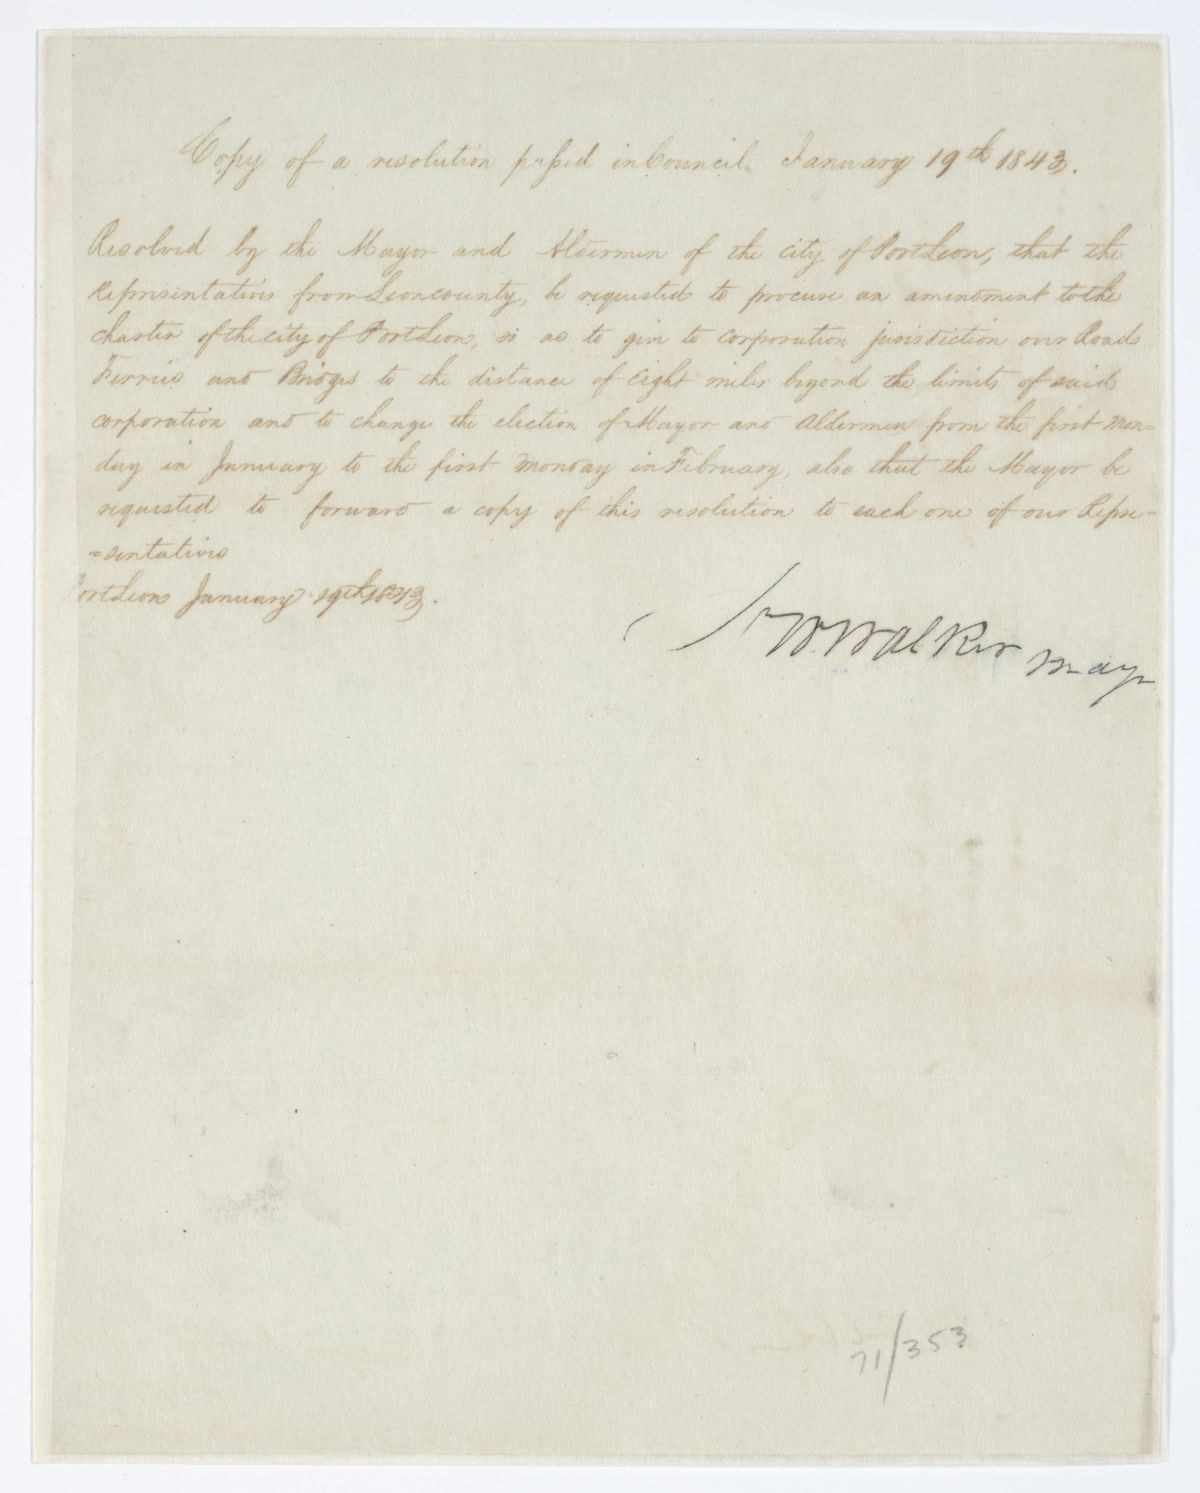 Copy of a resolution passed in Council January 19th 1843.
Resolved by the Mayor and Aldermen of the city of Port Leon, that the
Representatives from Leon county, be requested to procure an amendment to the
charter of the city of Port Leon, so as to give to corporation jurisdiction over Roads
Ferries and Bridges to the distance of Eight miles beyond the limits of said
corporation and to change the election of Mayor and Aldermen from the first Mon=
day in January to the first Monday in February, also that the Mayor be
requested to forward a copy of this resolution to each one of our Repre=
=sentatives
Port Leon January 19th 1843.
W. Walker Mayr
71/353